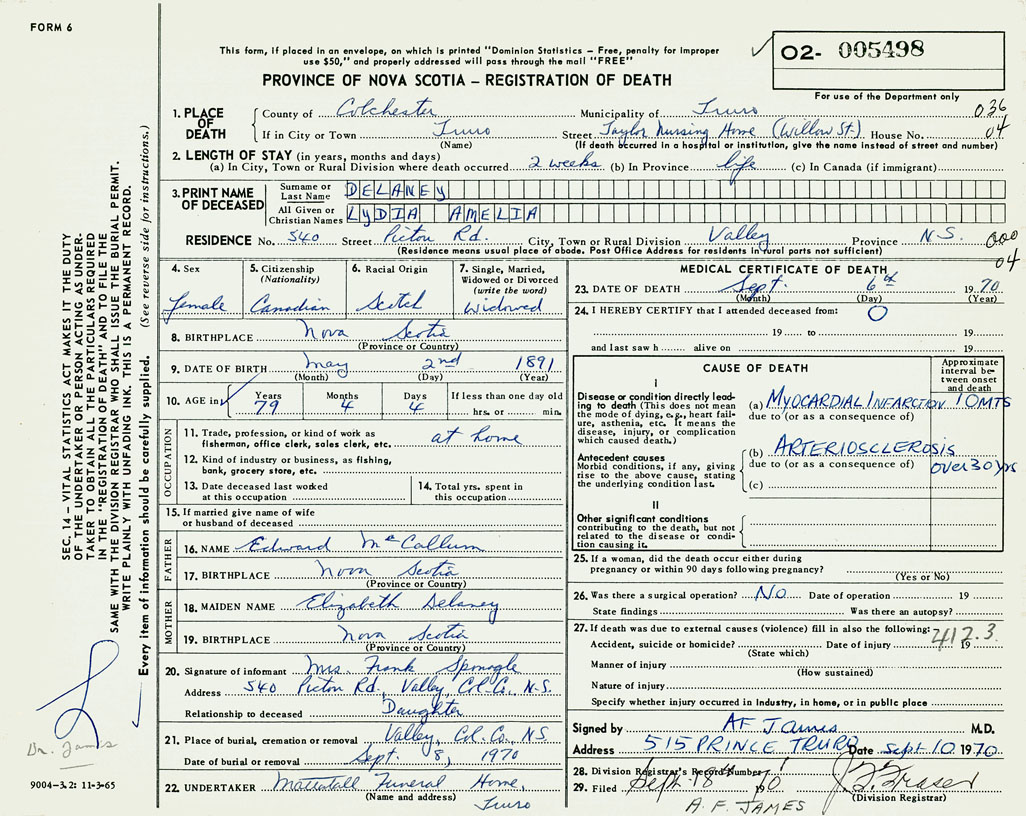 FORM 6
This form, if placed in an envelope, on which is printed "Dominion Statistics – Free, penalty for improper
use $50," and properly addressed will pass through the mail "FREE"
PROVINCE OF NOVA SCOTIA – REGISTRATION OF DEATH
02- 005498
For use of the Department only
SEC. 14 – VITAL STATISTICS ACT MAKES IT THE DUTY
OF THE UNDERTAKER OR PERSON ACTING AS UNDER-
TAKER TO OBTAIN ALL THE PARTICULARS REQUIRED
IN THE "REGISTRATION OF DEATH" AND TO FILE THE
SAME WITH THE DIVISION REGISTRAR WHO SHALL ISSUE THE BURIAL PERMIT.
WRITE PLAINLY WITH UNFADING INK. THIS IS A PERMANENT RECORD.
Every item of information should be carefully supplied. (See reverse side for instructions.)
1. PLACE OF DEATH
County of Colchester Municipality of Truro 036
If in City or Town Truro Street Taylor Nursing Home (Willow St.) House No. 04
(Name) (If death occurred in a hospital or institution, give the name instead of street and number)
2. LENGTH OF STAY (in years, months and days)
(a) In City, Town or Rural Division where death occurred 2 weeks (b) In Province life (c) In Canada (if immigrant)
3. PRINT NAME OF DECEASED
Surname or Last Name DELANEY
All Given or Christian Names LYDIA AMELIA
RESIDENCE No. 540 Street Picton Rd. City, Town or Rural Division Valley Province N.S. 000
(Residence means usual place of abode. Post Office Address for residents in rural parts not sufficient) 04
4. Sex
female
5. Citizenship (Nationality)
Canadian
6. Racial Origin
Scotch
7. Single, Married, Widowed or Divorced (write the word)
Widowed
8. BIRTHPLACE Nova Scotia
(Province or Country)
9. DATE OF BIRTH May 2nd 1891
(Month) (Day) (Year)
10. AGE in
Years Months Days If less than one day old
79 4 4 hrs. or min.
OCCUPATION
11. Trade, profession, or kind of work as
fisherman, office clerk, sales clerk, etc. at home
12. Kind of industry or business, as fishing,
bank, grocery store, etc.
13. Date deceased last worked
at this occupation
14. Total yrs. spent in
this occupation
15. If married give name of wife
or husband of deceased
FATHER
16. NAME Edward McCallum
17. BIRTHPLACE Nova Scotia
(Province or Country)
MOTHER
18. MAIDEN NAME Elizabeth Delaney
19. BIRTHPLACE Nova Scotia
(Province or Country)
20. Signature of informant Mrs. Frank Sponagle
Address 540 Picton Rd., Valley, Col. Co., N.S.
Relationship to deceased Daughter
21. Place of burial, cremation or removal Valley, Col. Co. N.S.
Date of burial or removal Sept. 8, 1970
22. UNDERTAKER Mattatall Funeral Home,
(Name and address) Truro
Dr. James
9004-3.2: 11-3-65
MEDICAL CERTIFICATE OF DEATH
23. DATE OF DEATH Sept. 6th 1970
(Month) (Day) (Year)
24. I HEREBY CERTIFY that I attended deceased from: O
19 to 19
and last saw h alive on 19
CAUSE OF DEATH
Approximate interval between onset and death
I
Disease or condition directly lead-
ing to death (This does not mean
the mode of dying, e.g., heart fail-
ure, asthenia, etc. It means the
disease, injury, or complication
which caused death.)
(a) MYOCARDIAL INFARCTION 10MTS
due to (or as a consequence of)
Antecedent causes
Morbid conditions, if any, giving
rise to the above cause, stating
the underlying condition last.
(b) ARTERIOSCLEROSIS
due to (or as a consequence of) over 30 yrs
(c)
II
Other significant conditions
contributing to the death, but not
related to the disease or condi-
tion causing it.
25. If a woman, did the death occur either during
pregnancy or within 90 days following pregnancy?
(Yes or No)
26. Was there a surgical operation? No Date of operation 19
State findings Was there an autopsy?
27. If death was due to external causes (violence) fill in also the following: 412.3
Accident, suicide or homicide? Date of injury 19
(State which)
Manner of injury
(How sustained)
Nature of injury
Specify whether injury occurred in industry, in home, or in public place
Signed by AF James M.D.
Address 515 PRINCE TRURO Date Sept 10 1970
28. Division Registrar's Record Number
29. Filed Sept 18th 1970 Fraser
(Division Registrar)
A. F. JAMES